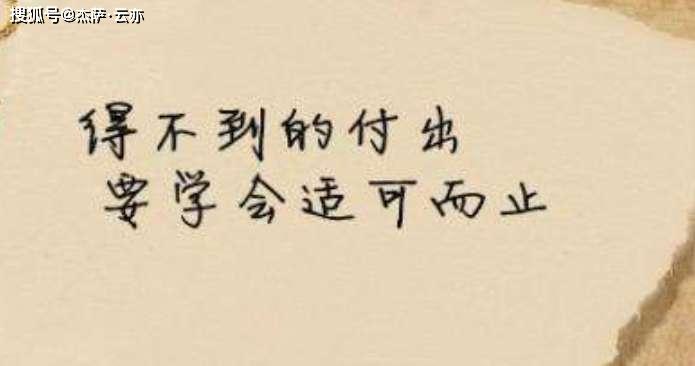 搜狐号@杰萨·云亦
得不到的付出
要学会适可而止